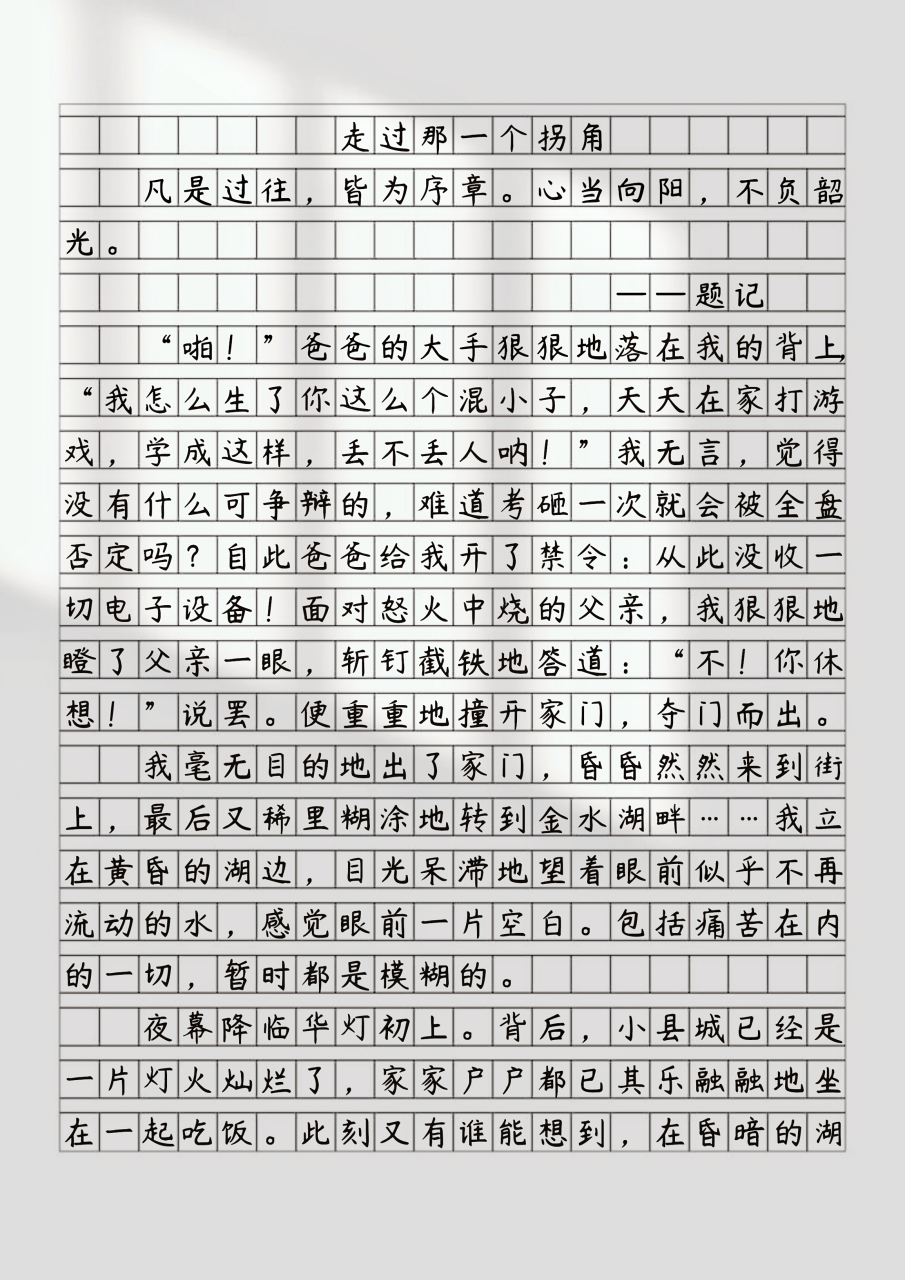 走过那一个拐角
凡是过往，皆为序章。心当向阳，不负韶
光。
——题记
“啪！”爸爸的大手狠狠地落在我的背上，
“我怎么生了你这么个混小子，天天在家打游
戏，学成这样，丢不丢人呐！”我无言，觉得
没有什么可争辩的，难道考砸一次就会被全盘
否定吗？自此爸爸给我开了禁令：从此没收一
切电子设备！面对怒火中烧的父亲，我狠狠地
瞪了父亲一眼，斩钉截铁地答道：“不！你休
想！”说罢。便重重地撞开家门，夺门而出。
我毫无目的地出了家门，昏昏然然来到街
上，最后又稀里糊涂地转到金水湖畔……我立
在黄昏的湖边，目光呆滞地望着眼前似乎不再
流动的水，感觉眼前一片空白。包括痛苦在内
的一切，暂时都是模糊的。
夜幕降临华灯初上。背后，小县城已经是
一片灯火灿烂了，家家户户都已其乐融融地坐
在一起吃饭。此刻又有谁能想到，在昏暗的湖